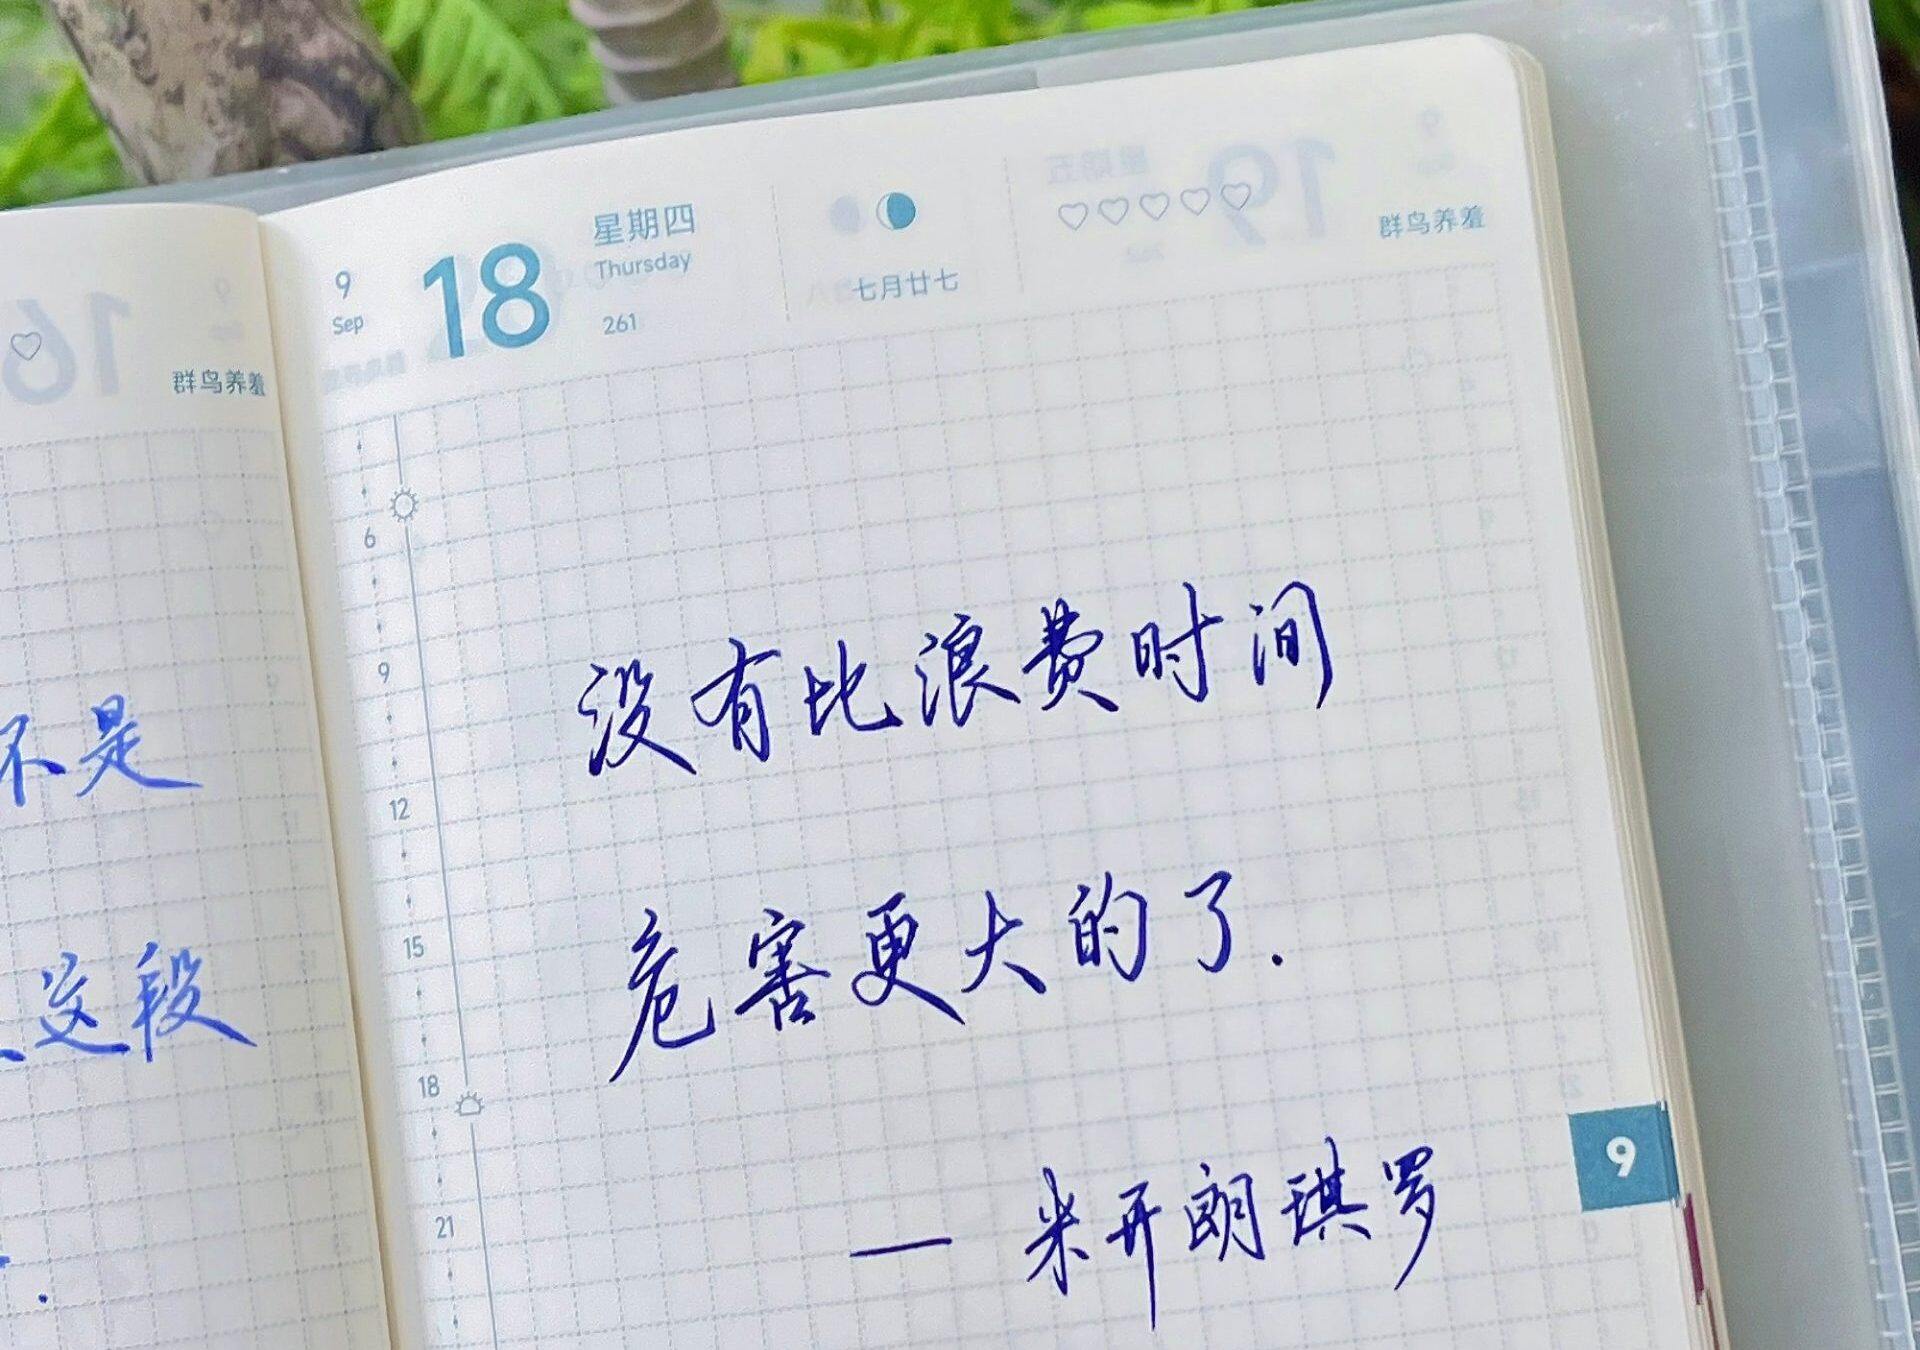 群鸟养羞
不是
这段
9
Sep
18
星期四
Thursday
261
七月廿七
群鸟养羞
6
9
12
15
18
21
没有比浪费时间
危害更大的了.
— 米开朗琪罗
9